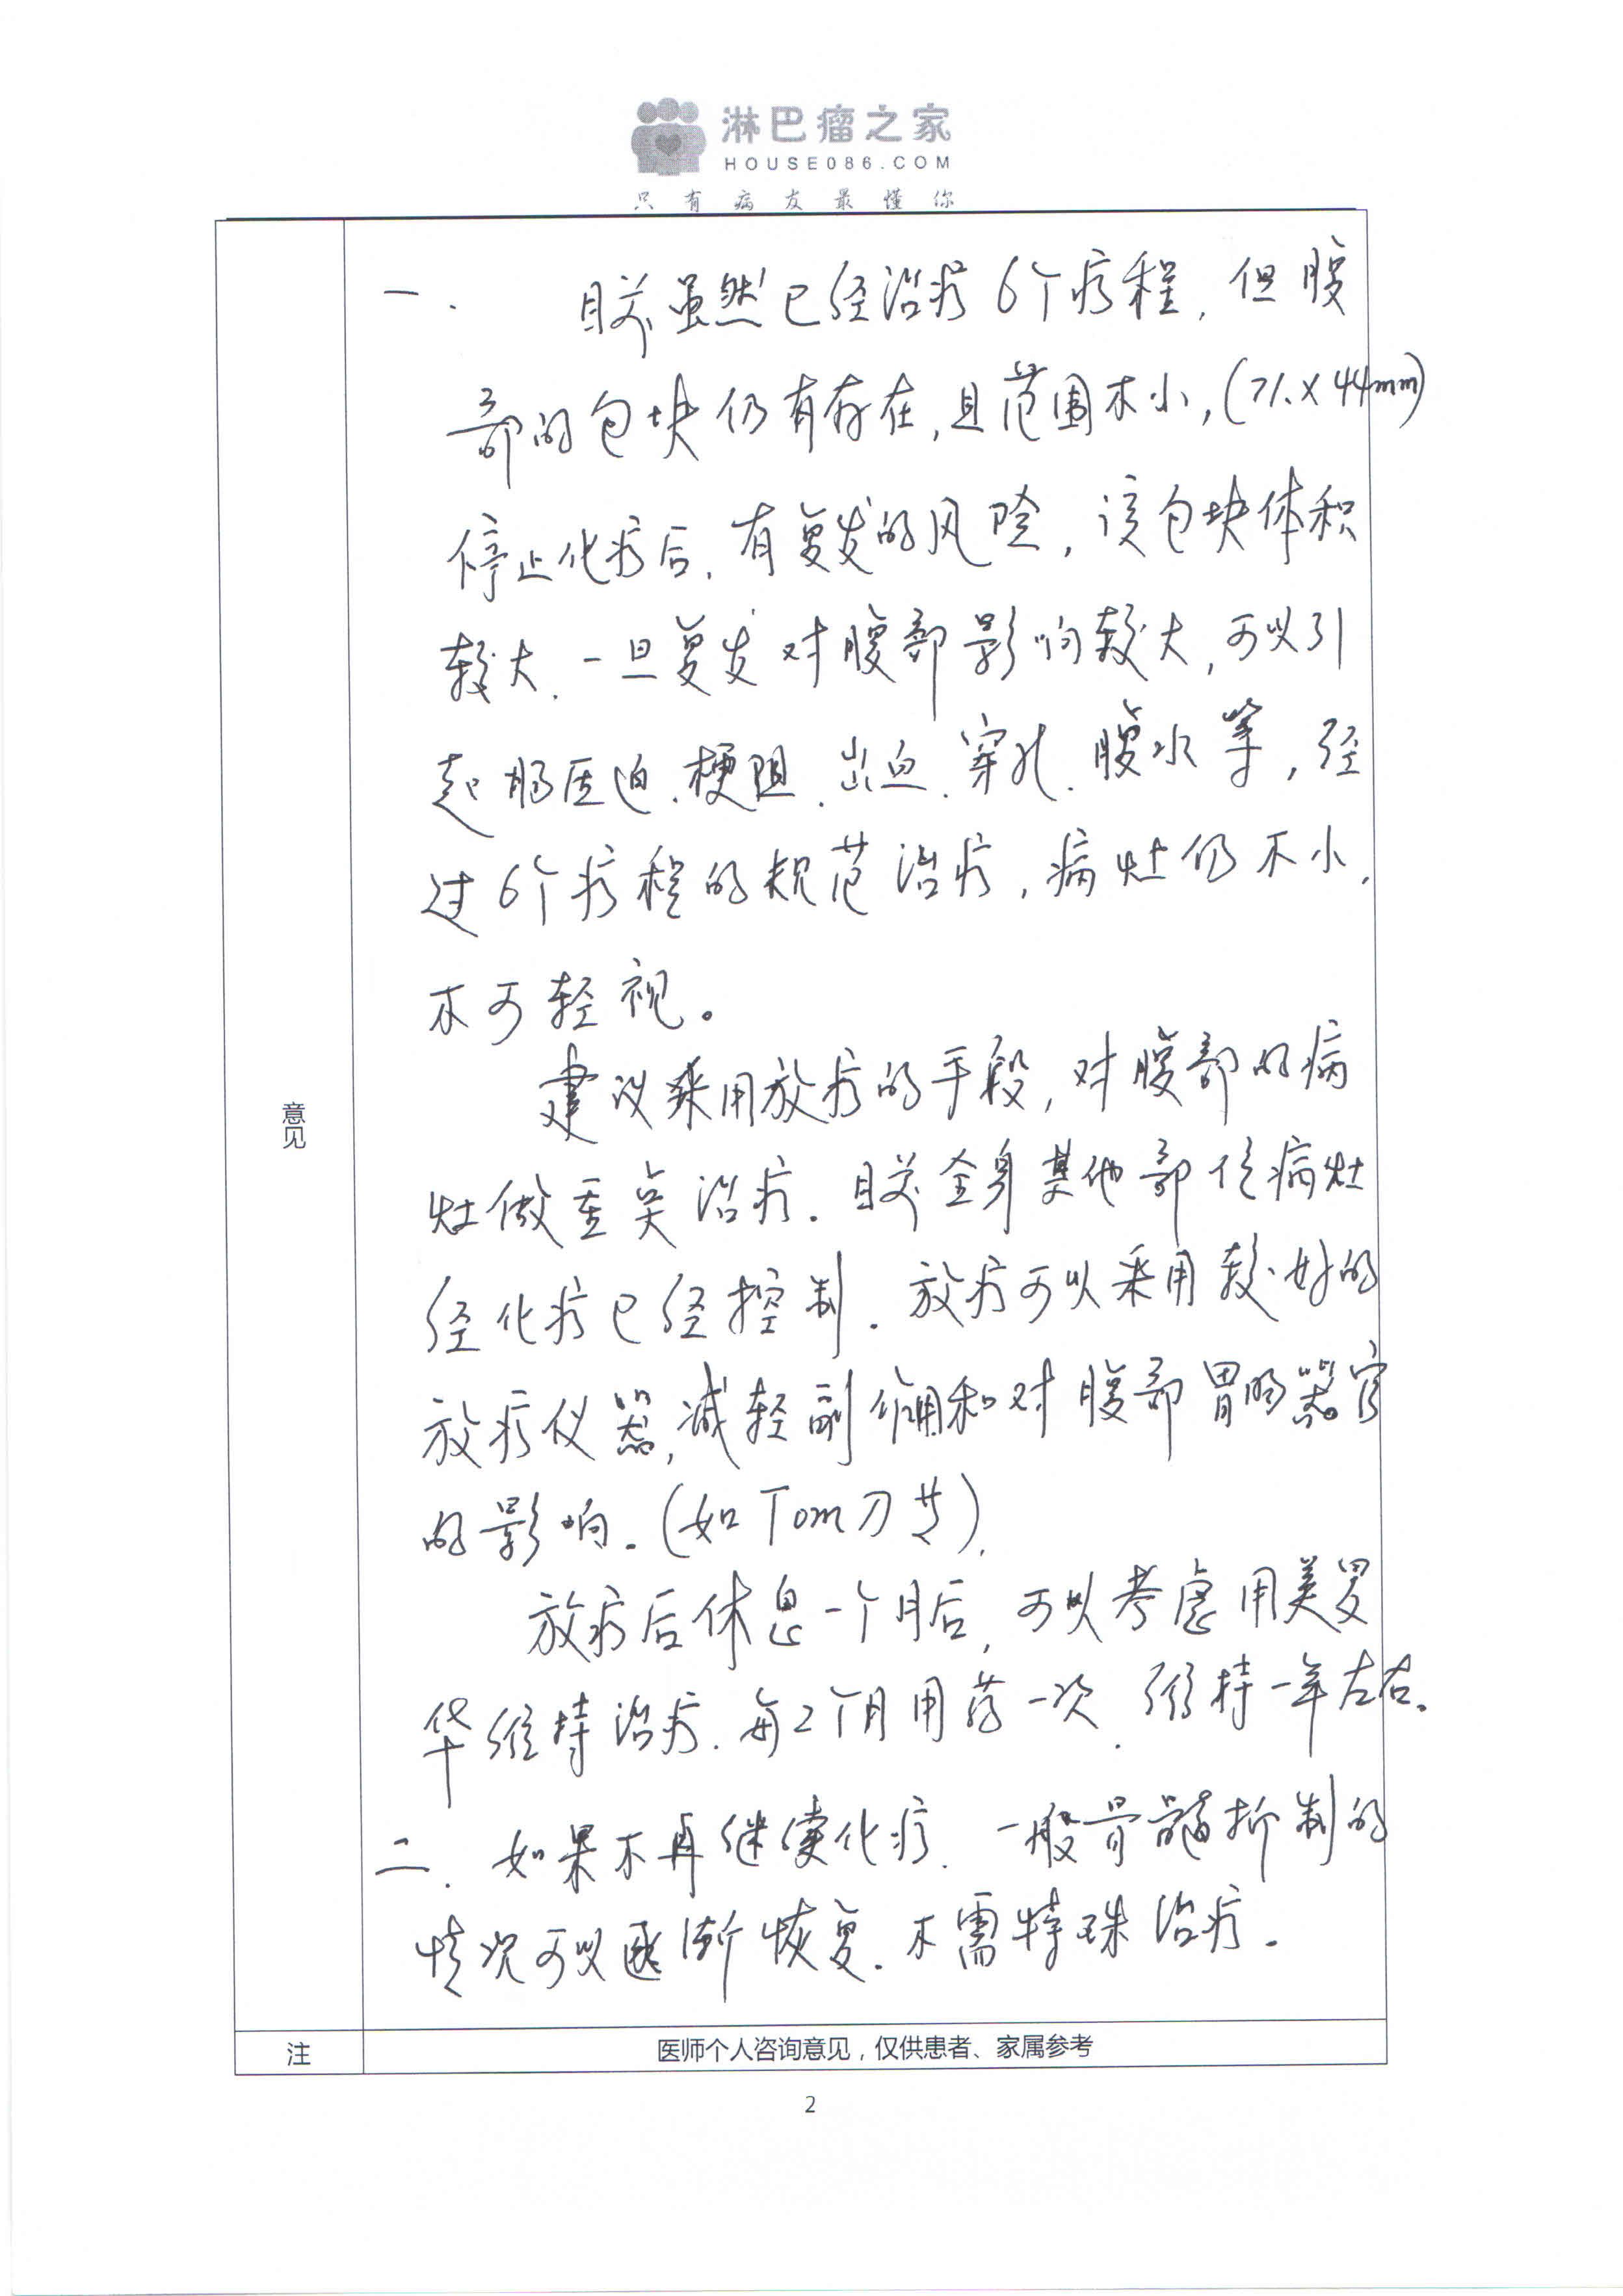 淋巴瘤之家
HOUSE086.COM
只有病友最懂你
一. 目前虽然已经治疗6个疗程,但腹
部的包块仍有存在,且范围不小,(71×44mm)
停止化疗后,有复发的风险,该包块体积
较大.一旦复发对腹部影响较大,可以引
起肠压迫.梗阻.出血.穿孔.腹水等,经
过6个疗程的规范治疗,病灶仍不小,
不可轻视。
建议采用放疗的手段,对腹部的病
灶做重点治疗.目前全身其他部位病灶
经化疗已经控制.放疗可以采用较好的
放疗仪器,减轻副作用和对腹部胃肠器官
的影响.(如Tom刀等).
放疗后休息一个月后,可以考虑用美罗
华维持治疗.每2个月用药一次.维持一年左右.
二.如果不再继续化疗.一般骨髓抑制的
情况可以逐渐恢复.不需特殊治疗.
意见
注
医师个人咨询意见,仅供患者、家属参考
2